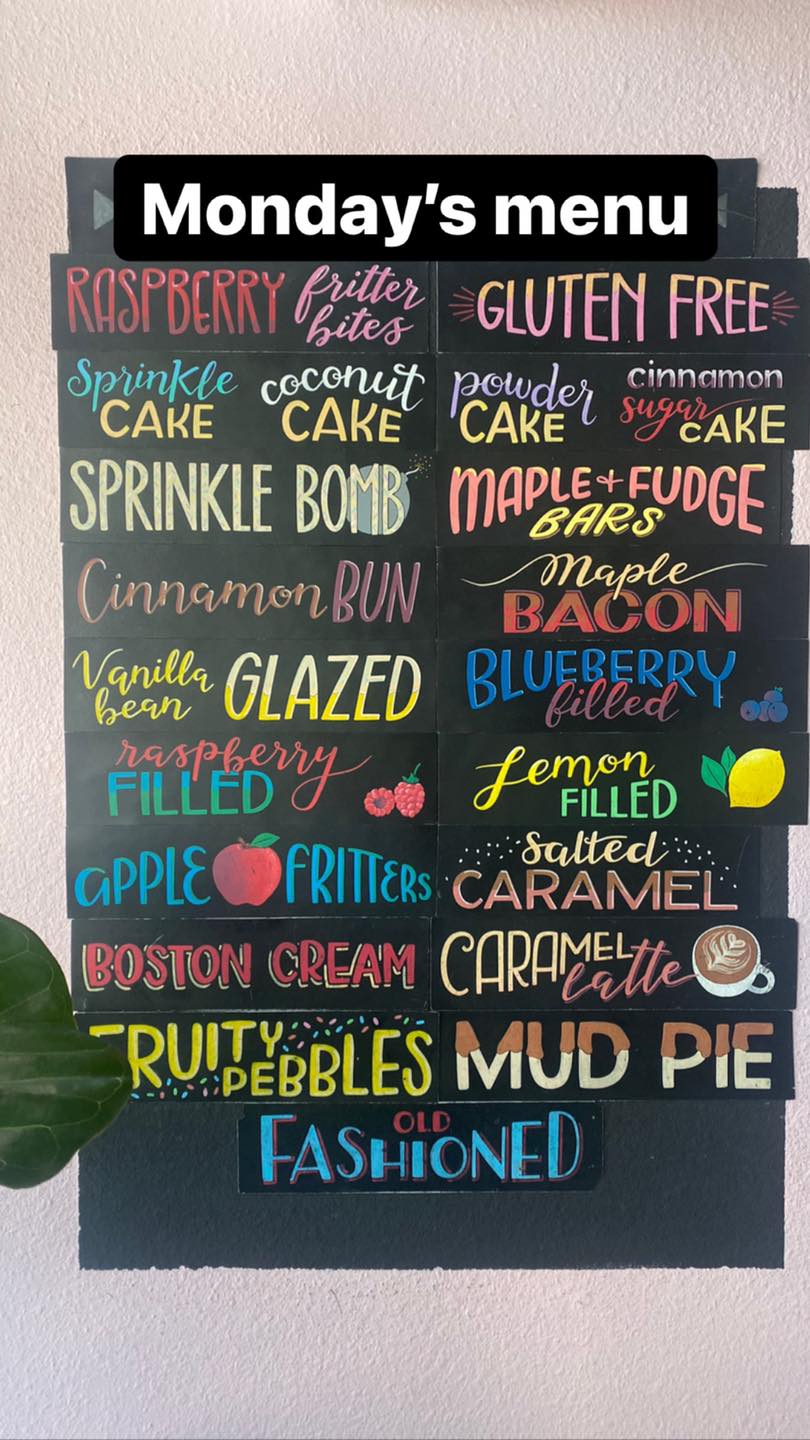 Monday's menu
RASPBERRY fritter bites
GLUTEN FREE
Sprinkle CAKE
coconut CAKE
powder CAKE
cinnamon sugar CAKE
SPRINKLE BOMB
MAPLE + FUDGE BARS
Cinnamon BUN
Maple BACON
Vanilla bean GLAZED
BLUEBERRY filled
raspberry FILLED
Lemon FILLED
APPLE FRITTERS
Salted CARAMEL
BOSTON CREAM
CARAMEL latte
FRUITY PEBBLES
MUD PIE
OLD FASHIONED